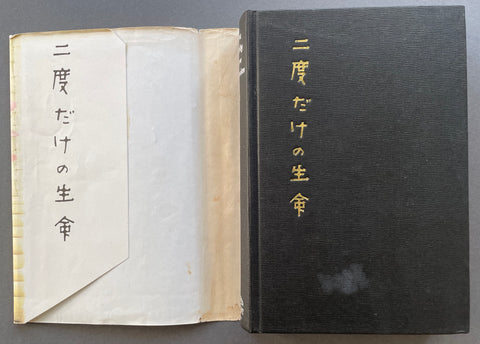 二度だけの生命
二度だけの生命